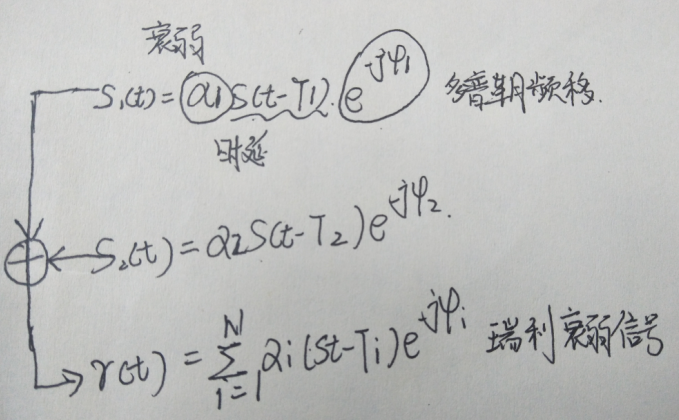 衰弱
S₁(t)=α₁S(t-T₁)·e^{-jφ₁} 多普勒频移.
时延
S₂(t)=α₂S(t-T₂)e^{-jφ₂}.
r(t)=∑_{i=1}^{N}αi(St-Ti)e^{-jφi} 瑞利衰弱信号